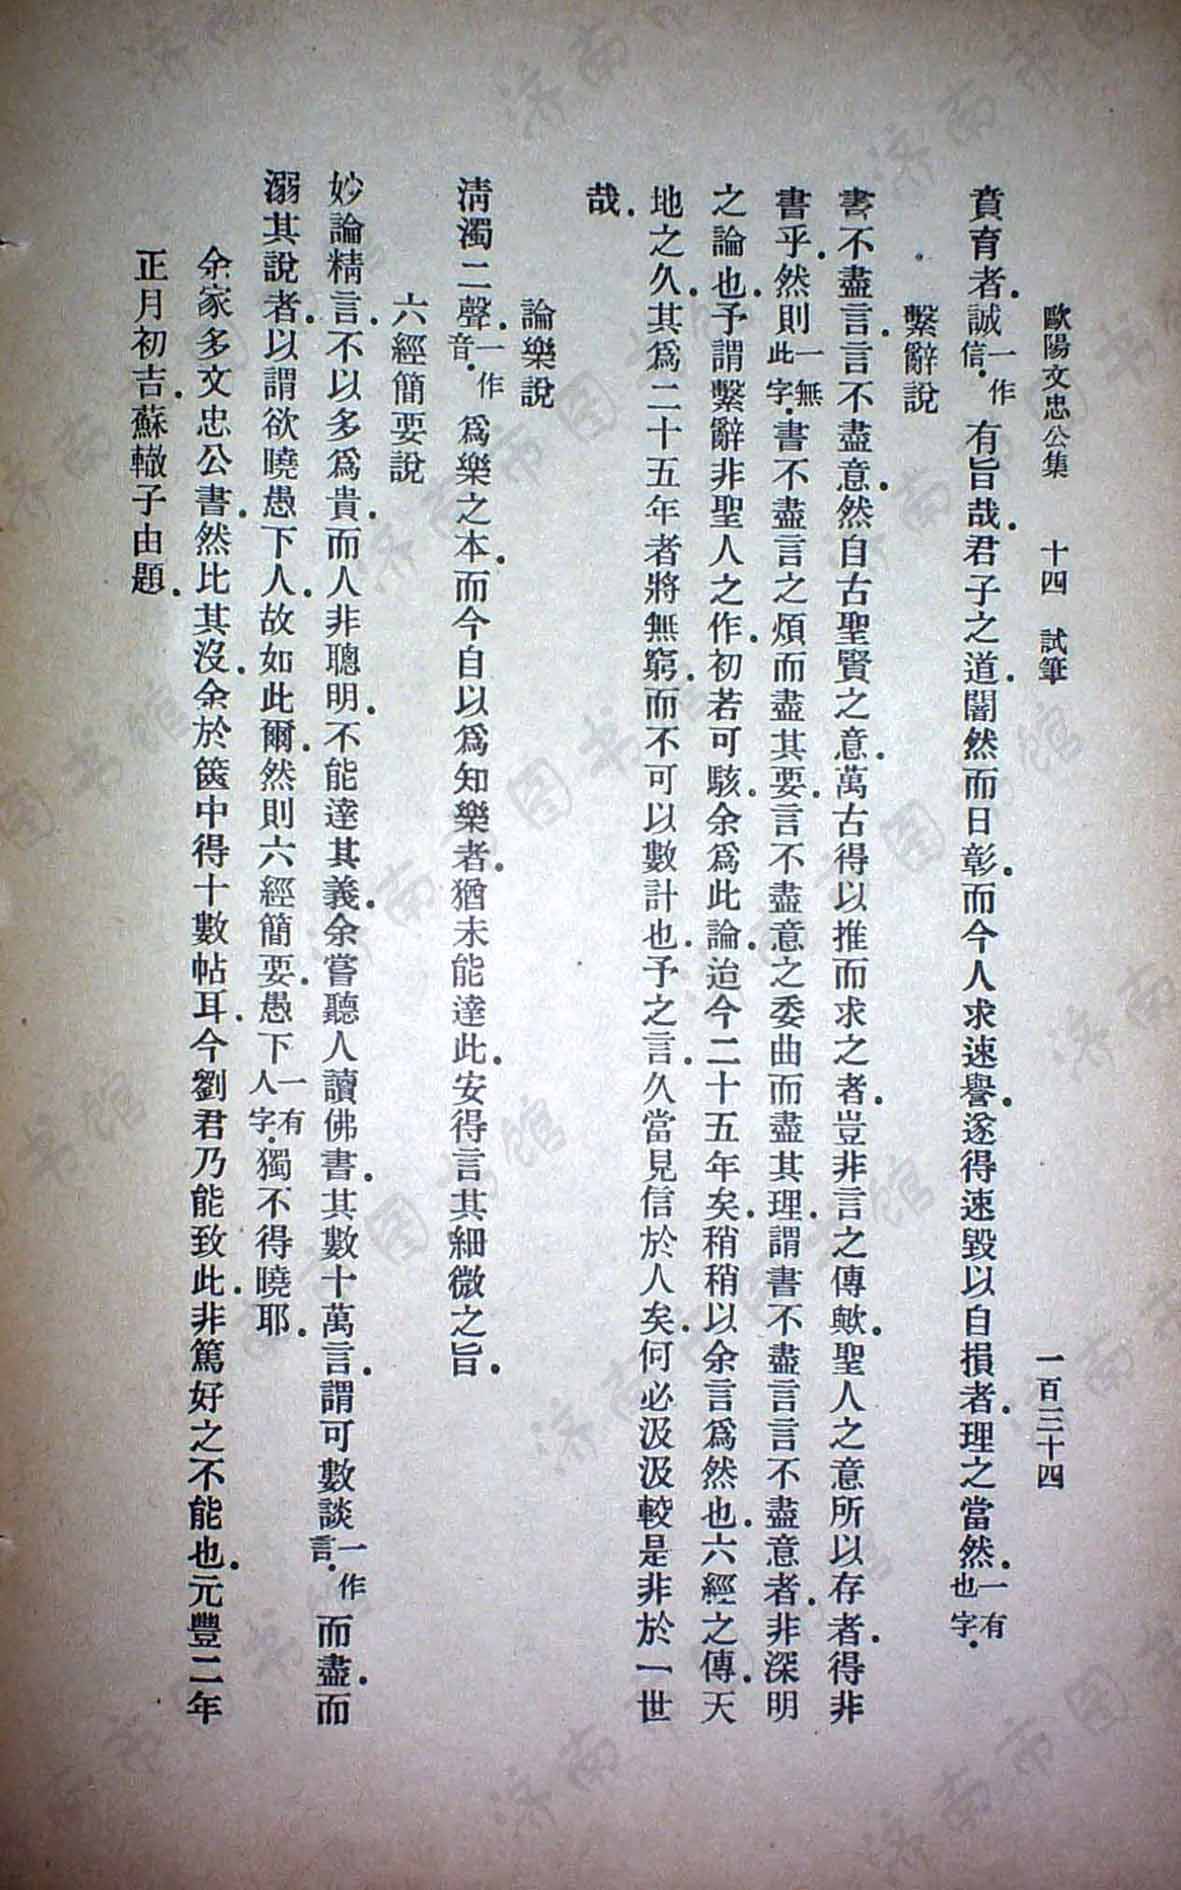 歐陽文忠公集　十四　試筆　一百三十四
賁育者．誠一作信．有旨哉．君子之道．闇然而日彰．而今人求速譽．遂得速毀以自損者．理之當然．一有也字．
繫辭說
書不盡言．言不盡意．然自古聖賢之意．萬古得以推而求之者．豈非言之傳歟．聖人之意所以存者．得非
書乎．然則一無此字．書不盡言之煩而盡其要．言不盡意之委曲而盡其理．謂書不盡言言不盡意者．非深明
之論也．予謂繫辭非聖人之作．初若可駭．余爲此論．迨今二十五年矣．稍稍以余言爲然也．六經之傳．天
地之久．其爲二十五年者將無窮．而不可以數計也．予之言．久當見信於人矣．何必汲汲較是非於一世
哉．
論樂說
清濁二聲．一作音．爲樂之本．而今自以爲知樂者．猶未能達此．安得言其細微之旨．
六經簡要說
妙論精言．不以多爲貴．而人非聰明．不能達其義．余嘗聽人讀佛書．其數十萬言．謂可數談一作言．而盡．而
溺其說者．以謂欲曉愚下人．故如此爾．然則六經簡要．愚下一有人字．獨不得曉耶．
余家多文忠公書．然比其沒．余於篋中得十數帖耳．今劉君乃能致此．非篤好之不能也．元豐二年
正月初吉．蘇轍子由題．
济南市图书馆